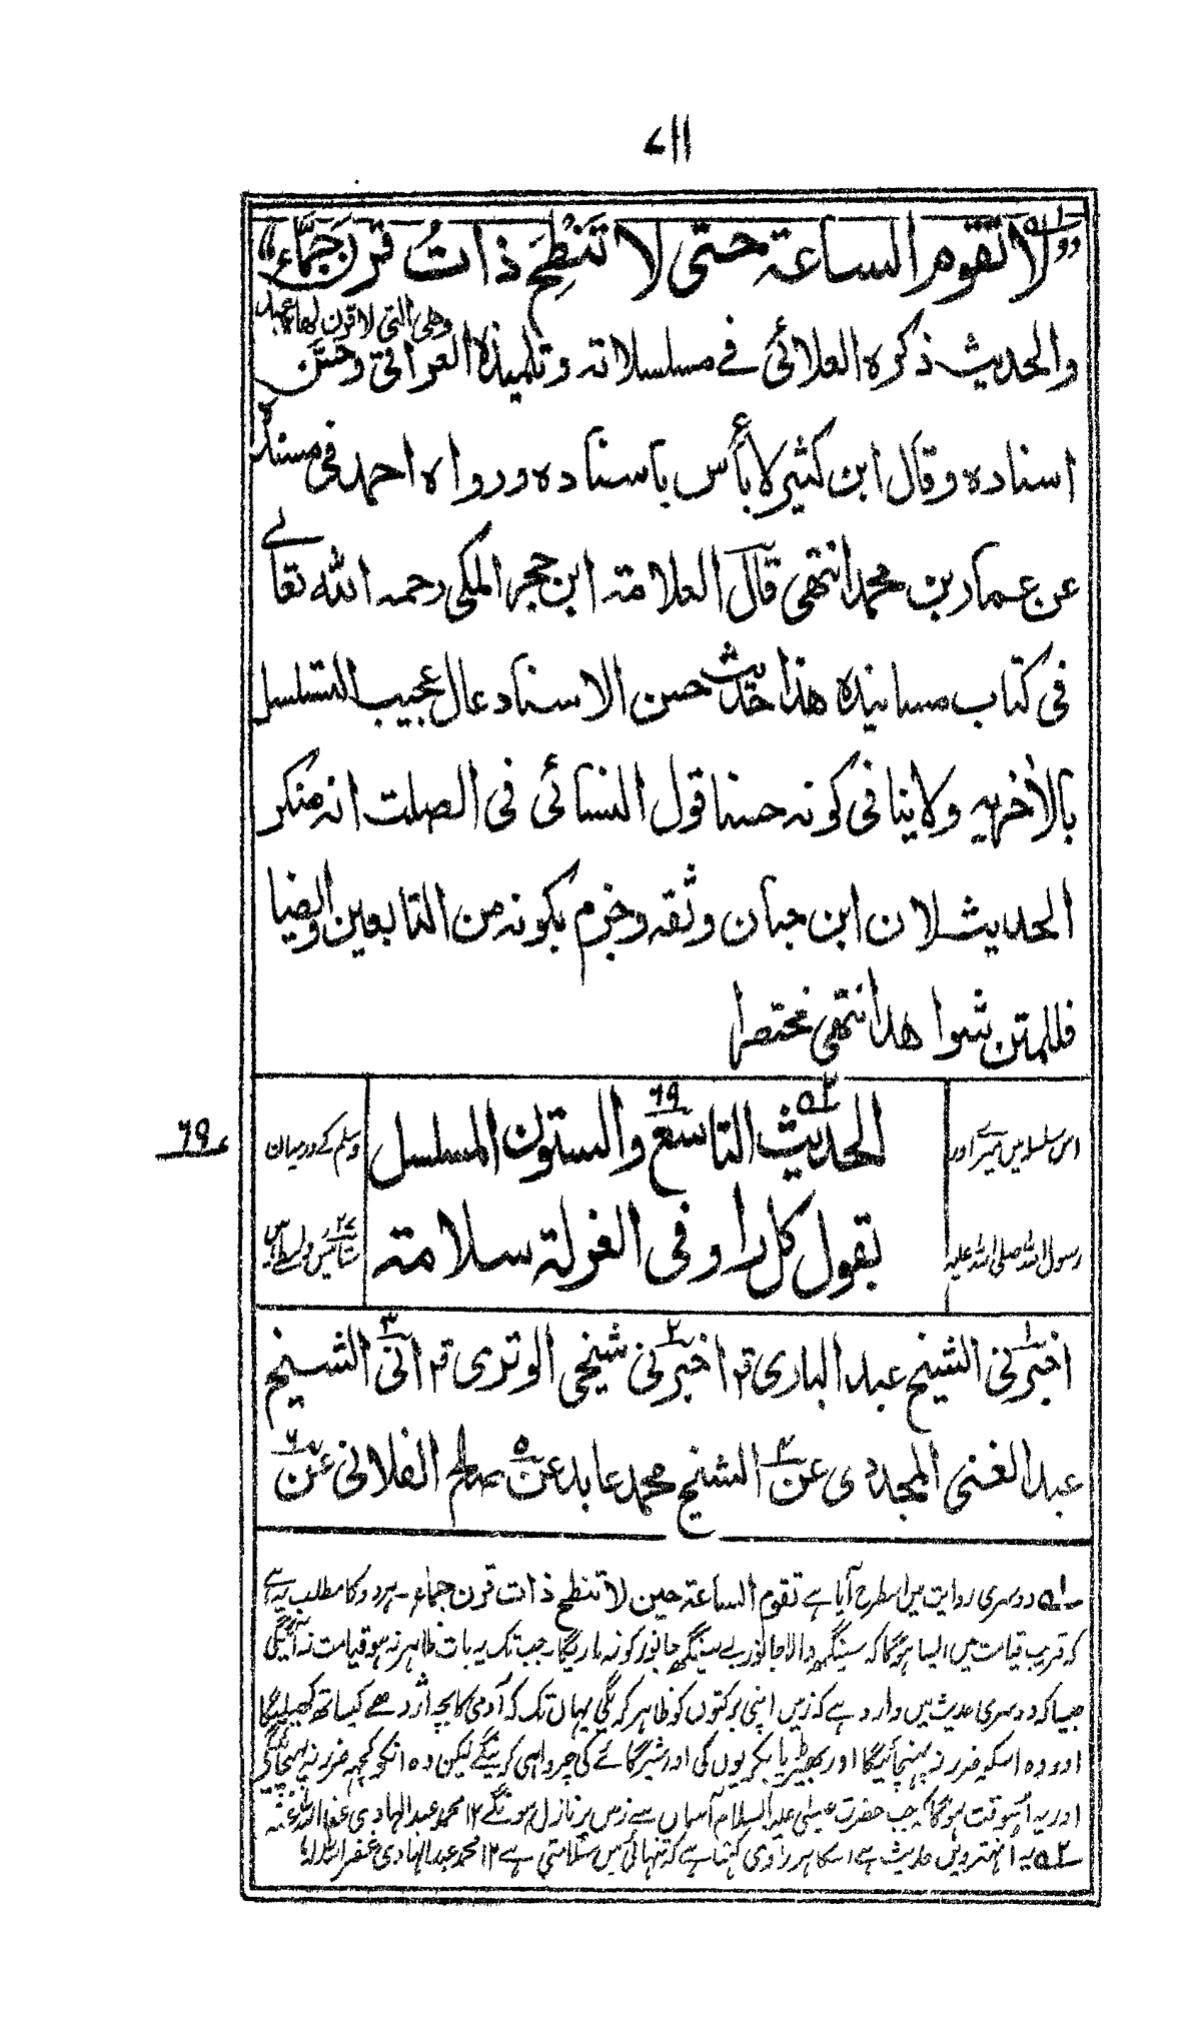 ۷۱۱
”لا تقوم الساعة حتى لا تَنْطِحَ ذاتُ قرن جَمَّاء“
وهى التى لا قرن لها
والحديث ذكره العلائى فے مسلسلاته وتلميذه العراقى وحسَّن
اسناده وقال ابن كثير لا بأس باسناده ورواه احمد فى مسنده
عن عمار بن محمد انتهى قال العلامة ابن حجر المكى رحمه الله تعالے
فى كتاب مسانيده هذا حديث حسن الاسناد عال عجيب التسلسل
بالأخرية ولا ينافى كونه حسنا قول النسائى فى الصلت انه منكر
الحديث لان ابن حبان وثقه وجزم بكونه من التابعين وايضا
فللمتن شواهد انتهى مختصرا
الحديث التاسع والستون المسلسل
بقول كل راو فى العزلة سلامة
اس سلسلہ میں میرے اور
رسول اللہ صلی اللہ علیہ
وسلم کے درمیان
ستائیس واسطے ہیں
٦٩
اخبرنى الشيخ عبد البارى ٢ اخبرنى شيخى الوترى ٣ انى الشيخ
عبد الغنى المجددى عن ٤ الشيخ محمد عابد عن ٥ صالح الفلانى عن ٦
۱ دوسری روایت میں اسطرح آیا ہے تقوم الساعۃ حین لا تنطح ذات قرن جماء ۔ ہر دو کا مطلب یہ ہے
کہ قریب قیامت میں ایسا ہوگا کہ سینگھ والا جانور بے سینگھ جانور کو نہ ماریگا۔ جب تک یہ بات ظاہر نہ ہو قیامت نہ آئیگی
جیسا کہ دوسری حدیث میں وارد ہے کہ زمین اپنی برکتوں کو ظاہر کریگی یہاں تک کہ آدمی کا بچہ اژدہے کیساتھ کھیلیگا
اور وہ اسکو ضرر نہ پہنچائیگا اور بھیڑیا بکریوں کی اور شیر گائے کی چرواہی کرینگے لیکن وہ انکو کچھ ضرر نہ پہنچائینگے
اور یہ اسوقت ہوگا کہ جب حضرت عیسیٰ علیہ السلام آسمان سے زمین پر نازل ہونگے ۱۲ محمد عبد الہادی عفا اللہ عنہ
۲ یہ انہترویں حدیث ہے اسکا ہر راوی کہتا ہے کہ تنہائی میں سلامتی ہے ۱۲ محمد عبد الہادی غفر اللہ لہ